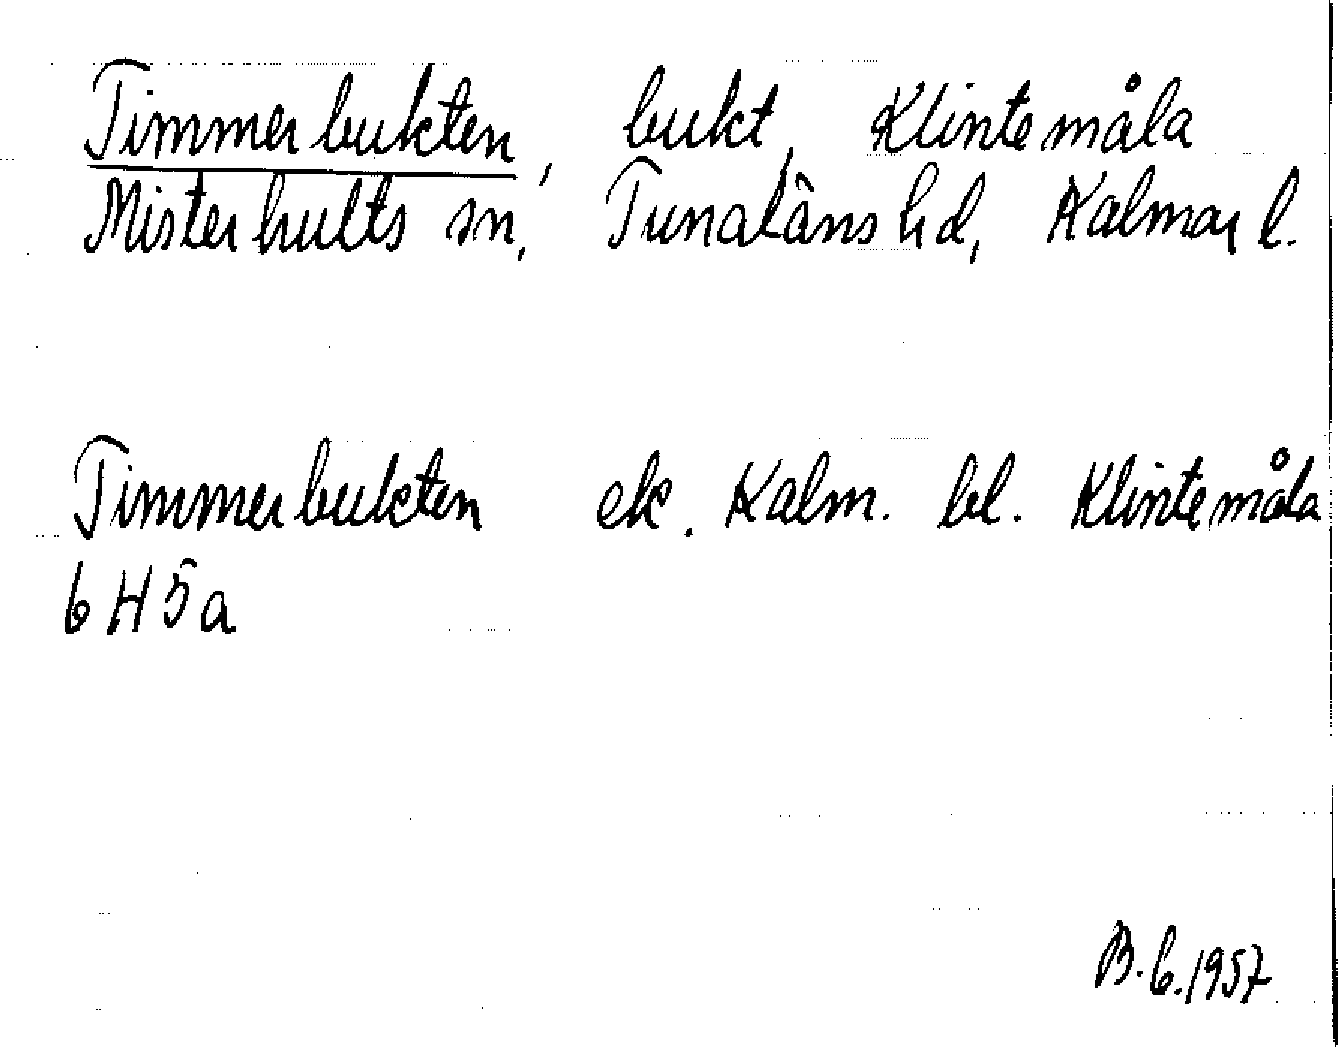 Timmerbukten, bukt, Klintemåla
Misterhults sn, Tunaläns hd, Kalmar l.
Timmerbukten ek. Kalm. bl. Klintemåla
6 H 5 a
B. 6. 1957